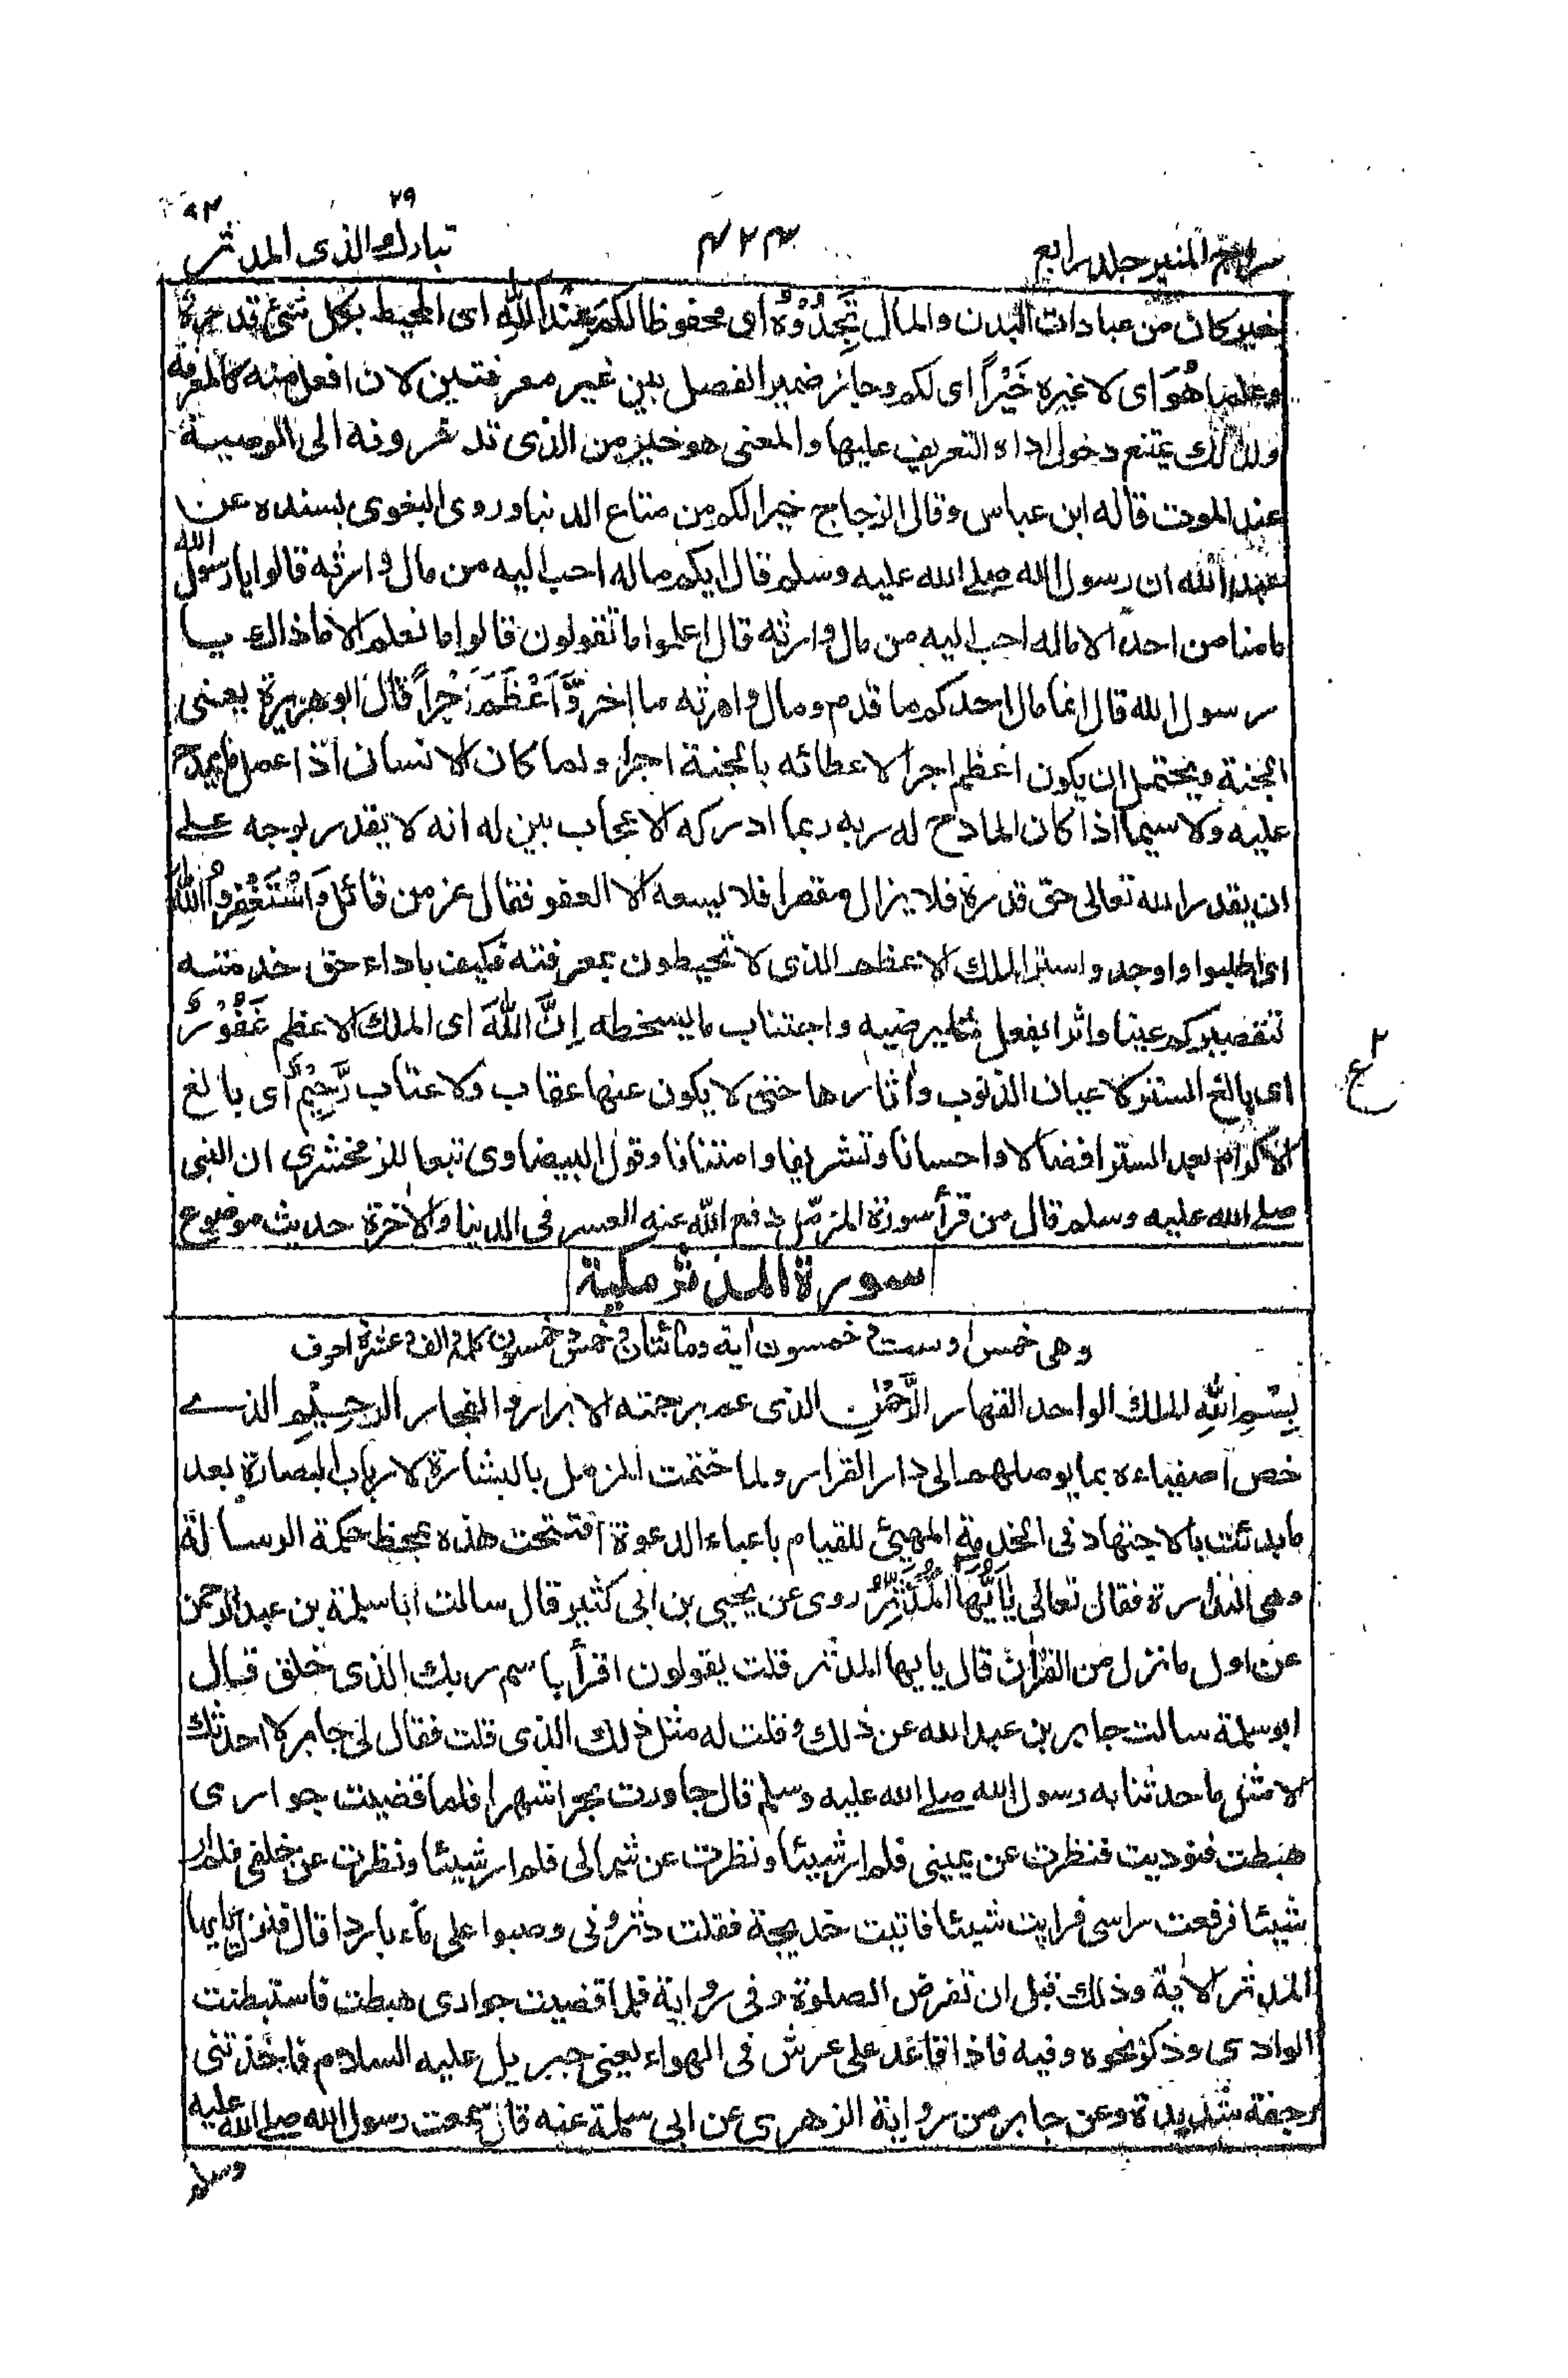 ٢٩
سراج المنير جلد رابع ٤٢٤ تبارك الذى المدثر
خير كان من عبادات البدن والمال تَجِدُوْهُ اى محفوظا لكم عِنْدَ اللهِ اى المحيط بكل شئ قدرة
وعلما هُوَ اى لا غيره خَيْراً اى لكم وجائز ضمير الفصل بين غير معرفتين لان افعل منه كالمعرفة
ولذلك يمتنع دخول اداة التعريف عليها والمعنى هو خير من الذى تدخرونه الى الوصية
عند الموت قاله ابن عباس وقال الزجاج خيرا لكم من متاع الدنيا وروى البغوى بسنده عن
عبد الله ان رسول الله صلى الله عليه وسلم قال ايكم ماله احب اليه من مال وارثه قالوا يا رسول الله
ما منا من احد الا ماله احب اليه من مال وارثه قال اعلموا ما تقولون قالوا ما نعلم الا ماذالك يا
رسول الله قال انما مال احدكم ما قدم ومال وارثه ما اخر وَّاَعْظَمَ اَجْراً قال ابو هريرة يعنى
الجنة ويحتمل ان يكون اعظم اجرا لاعطائه بالجنة اجرا ولما كان الانسان اذا عمل ما يمدح
عليه ولا سيما اذا كان المادح له ربه ربما ادركه الاعجاب بين له انه لا يقدر بوجه على
ان يقدر الله تعالى حق قدره فلا يزال مقصرا فلا يسعه الا العفو فقال عز من قائل وَاسْتَغْفِرُوا اللهَ
اى اطلبوا واوجد واستر الملك الاعظم الذى لا تحيطون بمعرفته فكيف باداء حق خدمته
تقصيركم عينا واثرا بفعل ما يرضيه واجتناب ما يسخطه اِنَّ اللهَ اى الملك الاعظم غَفُوْرٌ
اى بالغ الستر لاعيان الذنوب واثارها حتى لا يكون عنها عقاب ولا عتاب رَّحِيْمٌ اى بالغ
الاكرام بعد الستر افضالا واحسانا وتشريفا وامتنانا وقول البيضاوى تبعا للزمخشرى ان النبى
صلى الله عليه وسلم قال من قرأ سورة المزمل دفع الله عنه العسر فى الدينا والاخرة حديث موضوع
سورة المدثر مكية
وهى خمس او ست وخمسون اية ومائتان وخمس وخمسون كلمة والف وعشرة احرف
بِسْمِ اللهِ الملك الواحد القهار الرَّحْمٰنِ الذى عم برحمته الابرار والفجار الرَّحِيْمِ الذى
خص اصفياءه بما يوصلهم الى دار القرار ولما ختمت المزمل بالبشارة لارباب البصارة بعد
ما بدئت بالاجتهاد فى الخدمة المهيئ للقيام باعباء الدعوة افتتحت هذه بمحط حكمة الرسالة
وهى النذارة فقال تعالى يٰاَيُّهَا الْمُدَّثِّرُ روى عن يحيى بن ابى كثير قال سالت ابا سلمة بن عبد الرحمن
عن اول ما نزل من القرآن قال يايها المدثر قلت يقولون اقرأ باسم ربك الذى خلق قال
ابو سلمة سالت جابر بن عبد الله عن ذلك وقلت له مثل ذلك الذى قلت فقال لى جابر لا احدثك
الا مثل ما حدثنا به رسول الله صلى الله عليه وسلم قال جاورت بحرا شهرا فلما قضيت جوارى
هبطت فنوديت فنظرت عن يمينى فلم ار شيئا ونظرت عن شمالى فلم ار شيئا ونظرت عن خلفى فلم ار
شيئا فرفعت راسى فرايت شيئا فاتيت خديجة فقلت دثرونى وصبوا على ماء باردا قال فنزل يايها
المدثر الاية وذلك قبل ان تفرض الصلوة وفى رواية فلما قضيت جوارى هبطت فاستبطنت
الوادى وذكر نحوه وفيه فاذا قاعد على عرش فى الهواء يعنى جبريل عليه السلام فاخذتنى
رجفة شديدة وعن جابر من رواية الزهرى عن ابى سلمة عنه قال سمعت رسول الله صلى الله عليه
وسلم